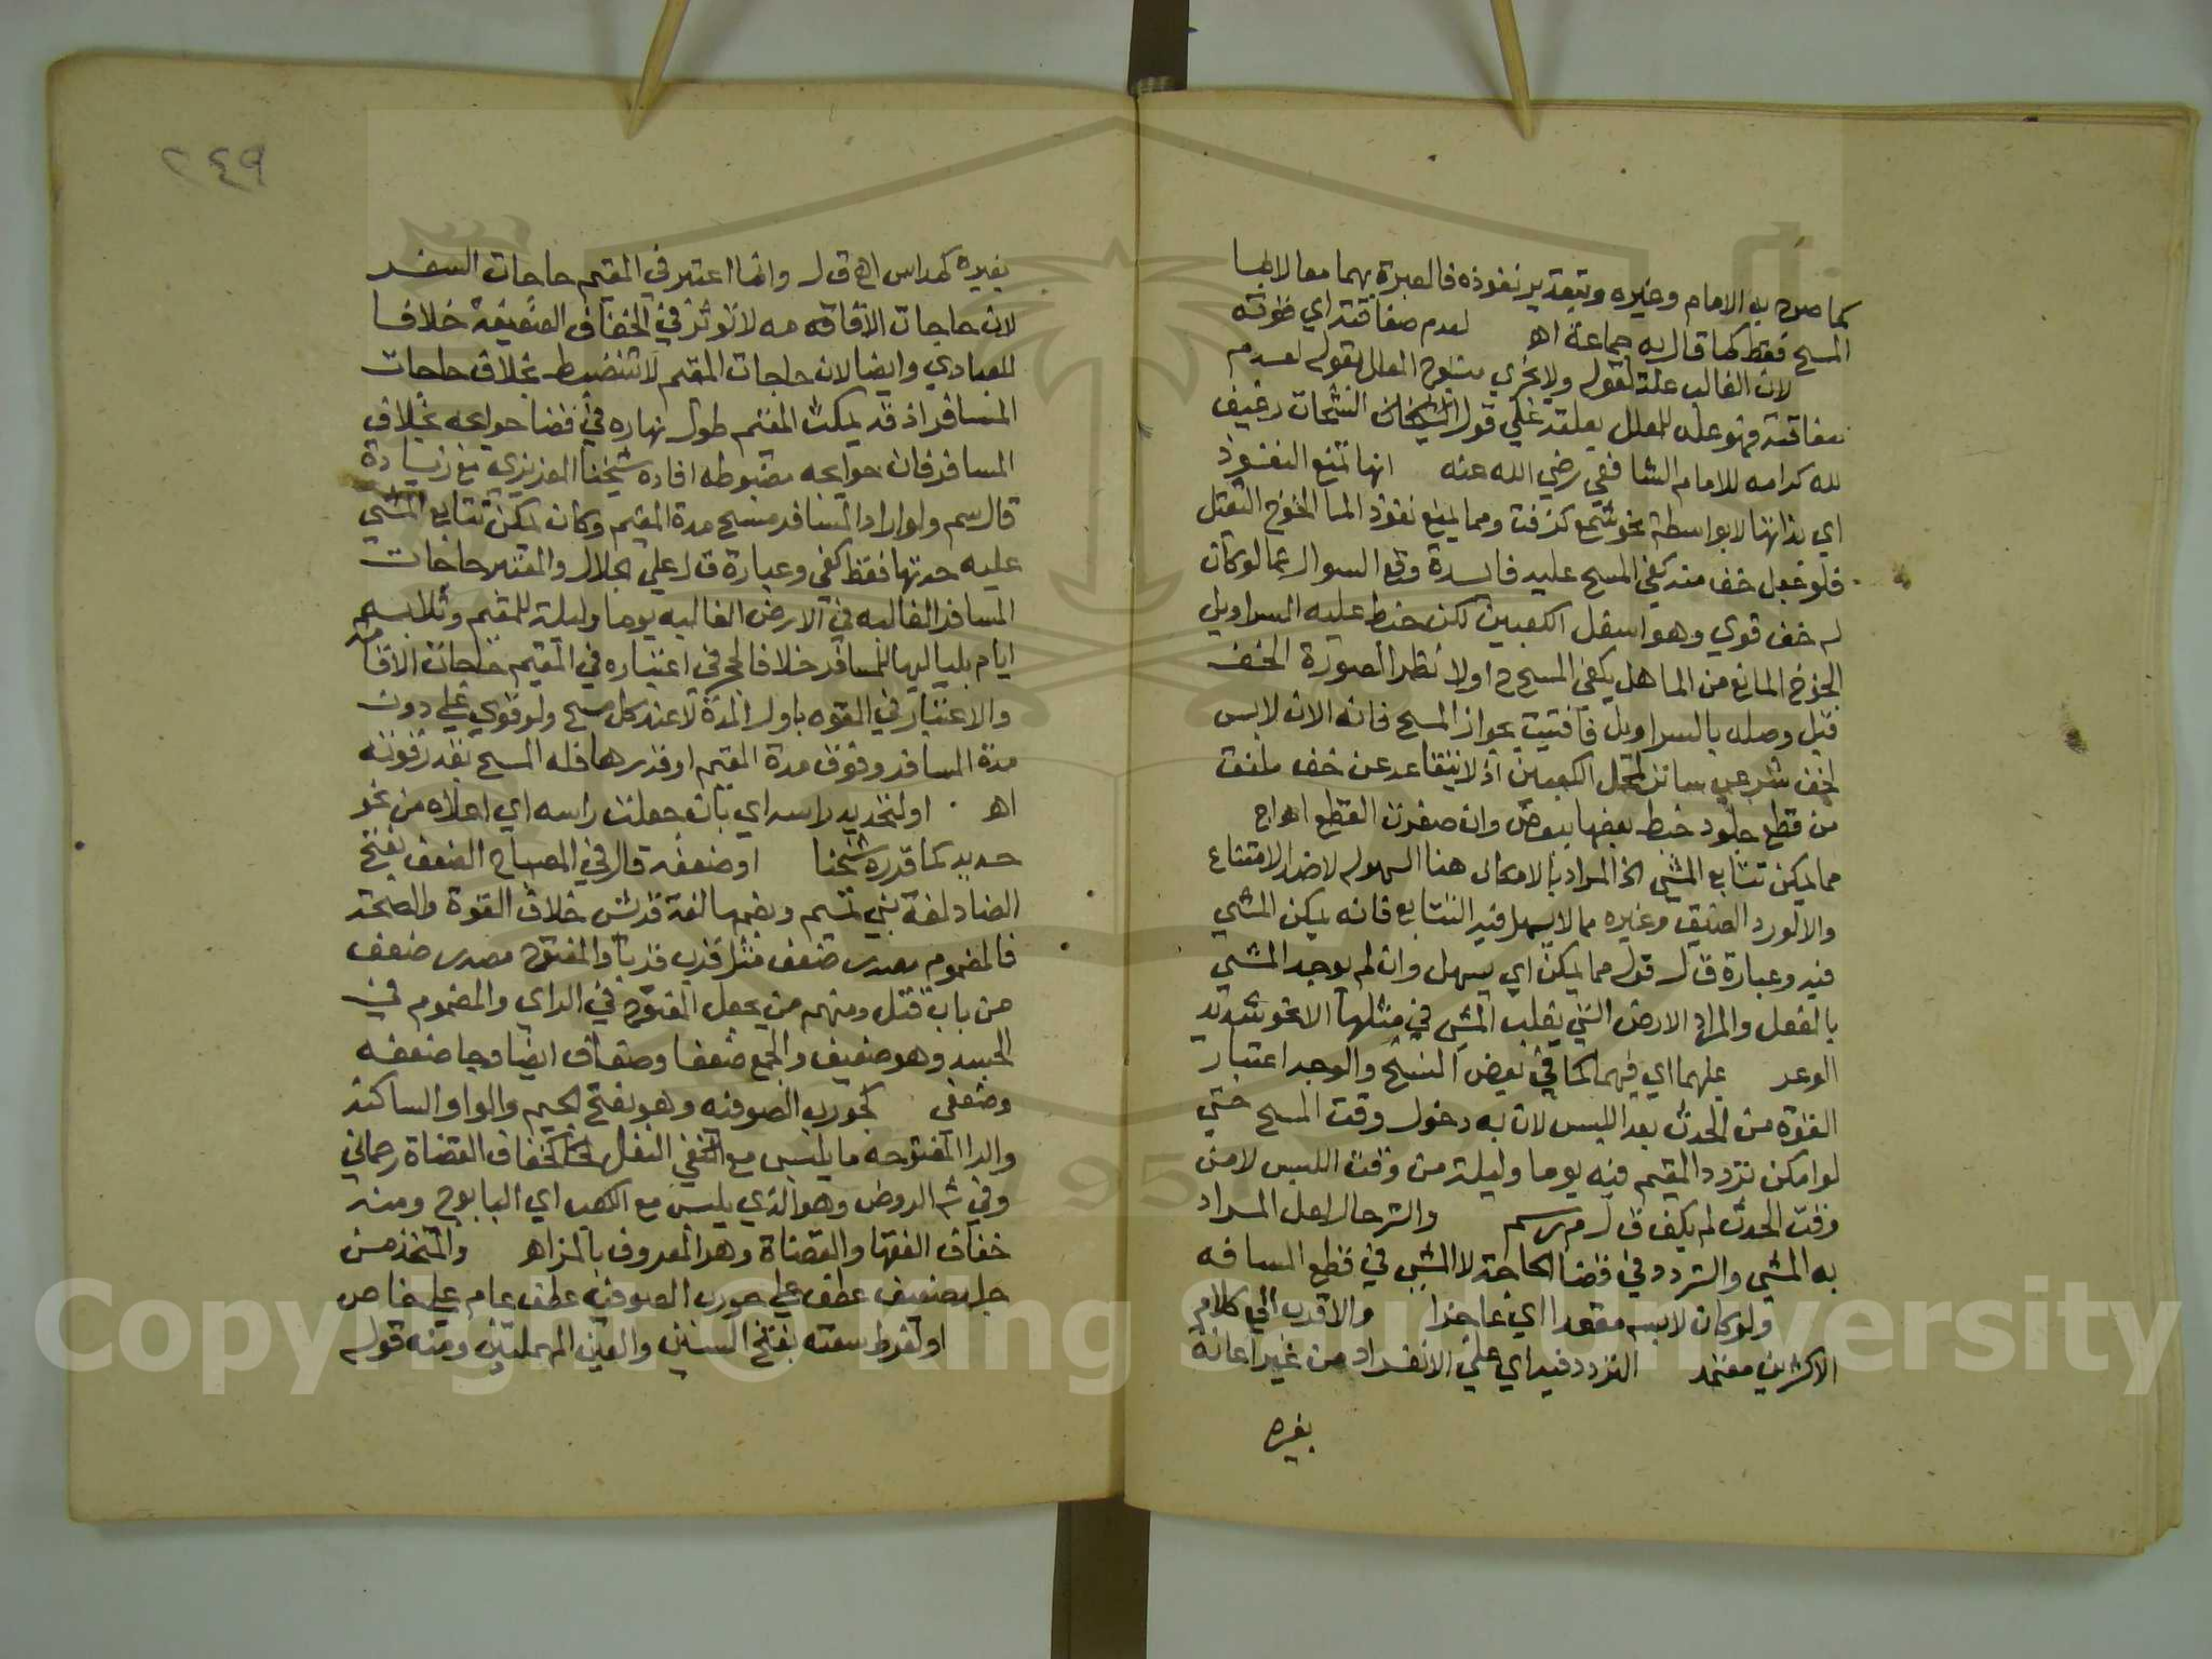 كما صرح به الامام وغيره وبتقدير نفوذه فالعبرة بهما معا لا بما
المسح فقط كما قال به جماعة اهـ لعدم صفاقته اي
لان الغالب علة لقوله ولا يجزي منسوج المعلل بقوله لعدم
صفاقته فهو علة للمعلل بعلته على قول
لله كرامه للامام الشافعي رضي الله عنه انها تمنع النفوذ
اي بذاتها لا بواسطة نحو شمع كزفت ومما يمنع نفوذ الما الجوخ الثقيل
فلو عمل خف منه كفى المسح عليه فايدة وقع السوال عما لو كان
له خف قوي وهو اسفل الكعبين لكن خيط عليه السراويل
الجوخ المانع من الما هل يكفي المسح ح اولا نظرا لصورة الخف
قبل وصله بالسراويل فافتيت بجواز المسح فانه الان لابس
لخف شرعي ساتر لمحل الكعبين اذ لا يتقاعد عن خف ملفق
من قطع جلود خيط بعضها ببعض وان صغرت القطع اهـ اج
مما يمكن تتابع المشي الخ المراد بالامكان هنا السهوله لا ضد الامتناع
والا لورد الضيق وغيره مما لا يسهل فيه التتابع فانه يمكن المشي
فيه وعبارة ق ل قوله مما يمكن اي يسهل وان لم يوجد المشي
بالفعل والمراد الارض التي يغلب المشي في مثلها لا نحو شديد
الوعر عليهما اي فيهما كما في بعض النسخ والوجه اعتبار
القوة من الحدث بعد اللبس لان به دخول وقت المسح حتى
لو امكن تردد المقيم فيه يوما وليلة من وقت اللبس لا من
وقت الحدث لم يكف ق ل م ر سم والترحال لعل المراد
به المشي والتردد في قضا الحاجة لا المشي في قطع المسافه
ولو كان لابسه مقعدا اي عاجزا والاقرب الى كلام
الاكثرين معتمد التردد فيه اي على الانفراد من غير اعانة
بغيره
٢٤٩
بغيره كمداس اهـ ق ل وانما اعتبر في المقيم حاجات السفر
لان حاجات الاقامه لا تؤثر في الخفاف الضعيفة خلافا
للعبادي وايضا لان حاجات المقيم لا تنضبط بخلاف حاجات
المسافر اذ قد يمكث المقيم طول نهاره في قضا حوايجه بخلاف
المسافر فان حوايجه مضبوطه افاده شيخنا العزيزي مع زيادة
قال سم ولو اراد المسافر مسح مدة المقيم وكان يمكن تتابع المشي
عليه مدتها فقط كفى وعبارة ق ل على الجلال والمعتبر حاجات
المسافر الغالبه في الارض الغالبه يوما وليلة للمقيم وثلاثه
ايام بلياليها للمسافر خلافا لحج في اعتباره في المقيم حاجات الاقامه
والاعتبار في القوه باول المدة لا عند كل مسح ولو قوي على دون
مدة المسافر وفوق مدة المقيم او قدرها فله المسح بقدر قوته
اهـ او لتحديد راسه اي بان جعلت راسه اي اعلاه من نحو
حديد كما قرره شيخنا او ضعفه قال في المصباح الضعف بفتح
الضاد لغة بني تميم وبضمها لغة قريش خلاف القوة والصحة
فالمضموم مصدر ضعف مثل قرب قربا والمفتوح مصدر ضعف
من باب قتل ومنهم من يجعل المفتوح في الراي والمضموم في
الجسد وهو ضعيف والجمع ضعفا وضعاف ايضا وجا ضعفه
وضعفى كجورب الصوفيه وهو بفتح الجيم والواو الساكنة
والرا المفتوحه ما يلبس مع النعل كخفاف القضاة رحماني
وفي ش الروض وهو الذي يلبس مع الكعب اي البابوج ومنه
خفاف الفقها والقضاة وهو المعروف بالمز اهـ والمتخذ من
جلد ضعيف عطف على جورب الصوفيه عطف عام على خاص
او لفرط سعته بفتح السين والعين المهملتين ومنه قوله
Copyright © King Saud University
1957